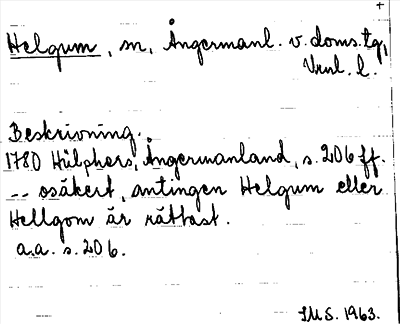 +
Helgum, sn, Ångermanl. v. doms.tg,
Vrnl. l.
Beskrivning.
1780 Hülphers, Ångermanland, s. 206 ff.
-- osäkert, antingen Helgum eller
Hellgom är rättast.
a.a. s. 206.
IMS. 1963.